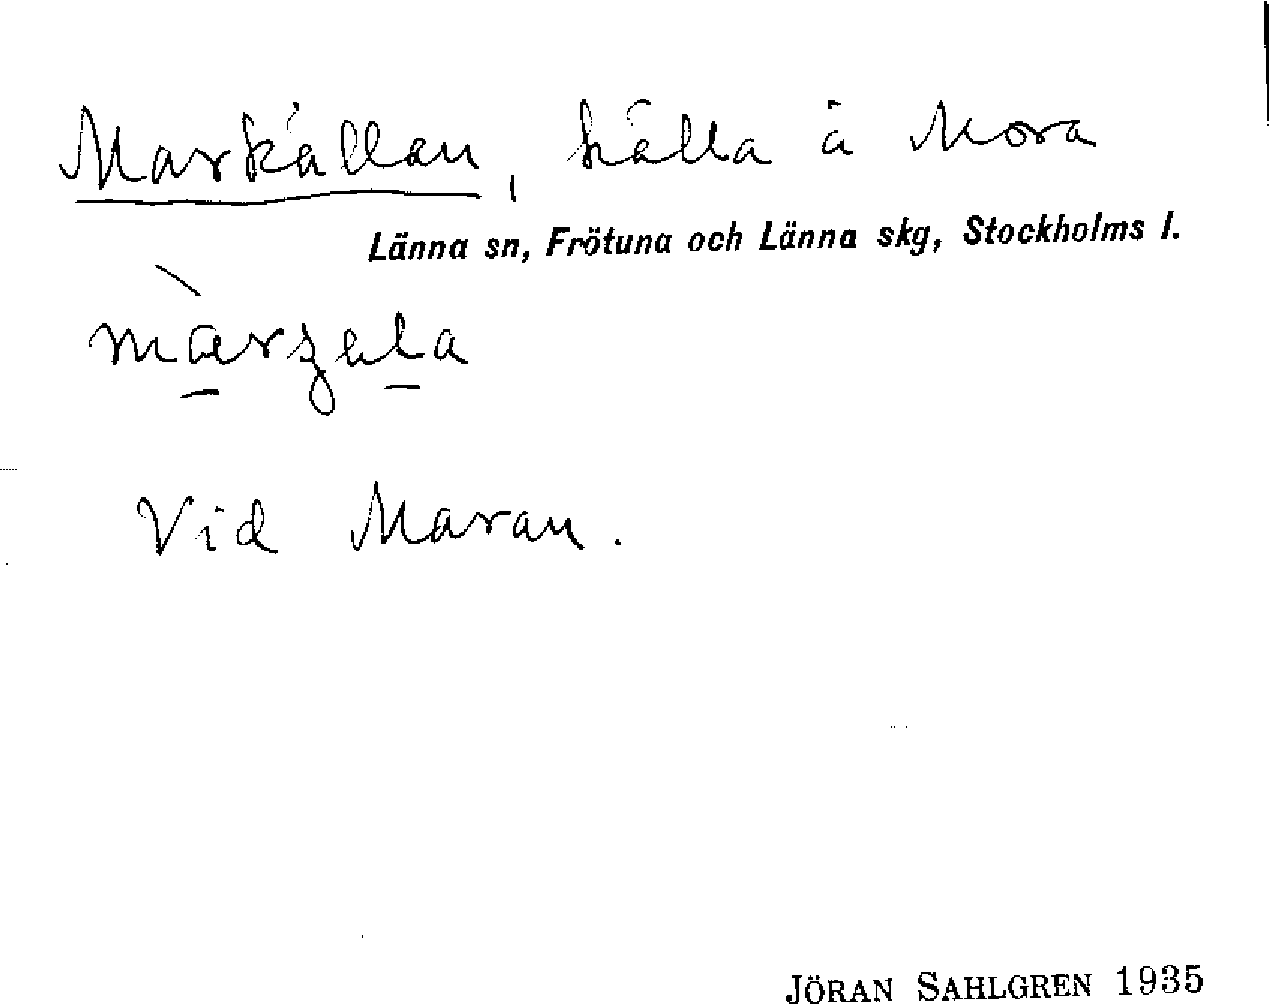 Markällan, källa å Mora
Länna sn, Frötuna och Länna skg, Stockholms l.
Vid Maran.
JÖRAN SAHLGREN 1935